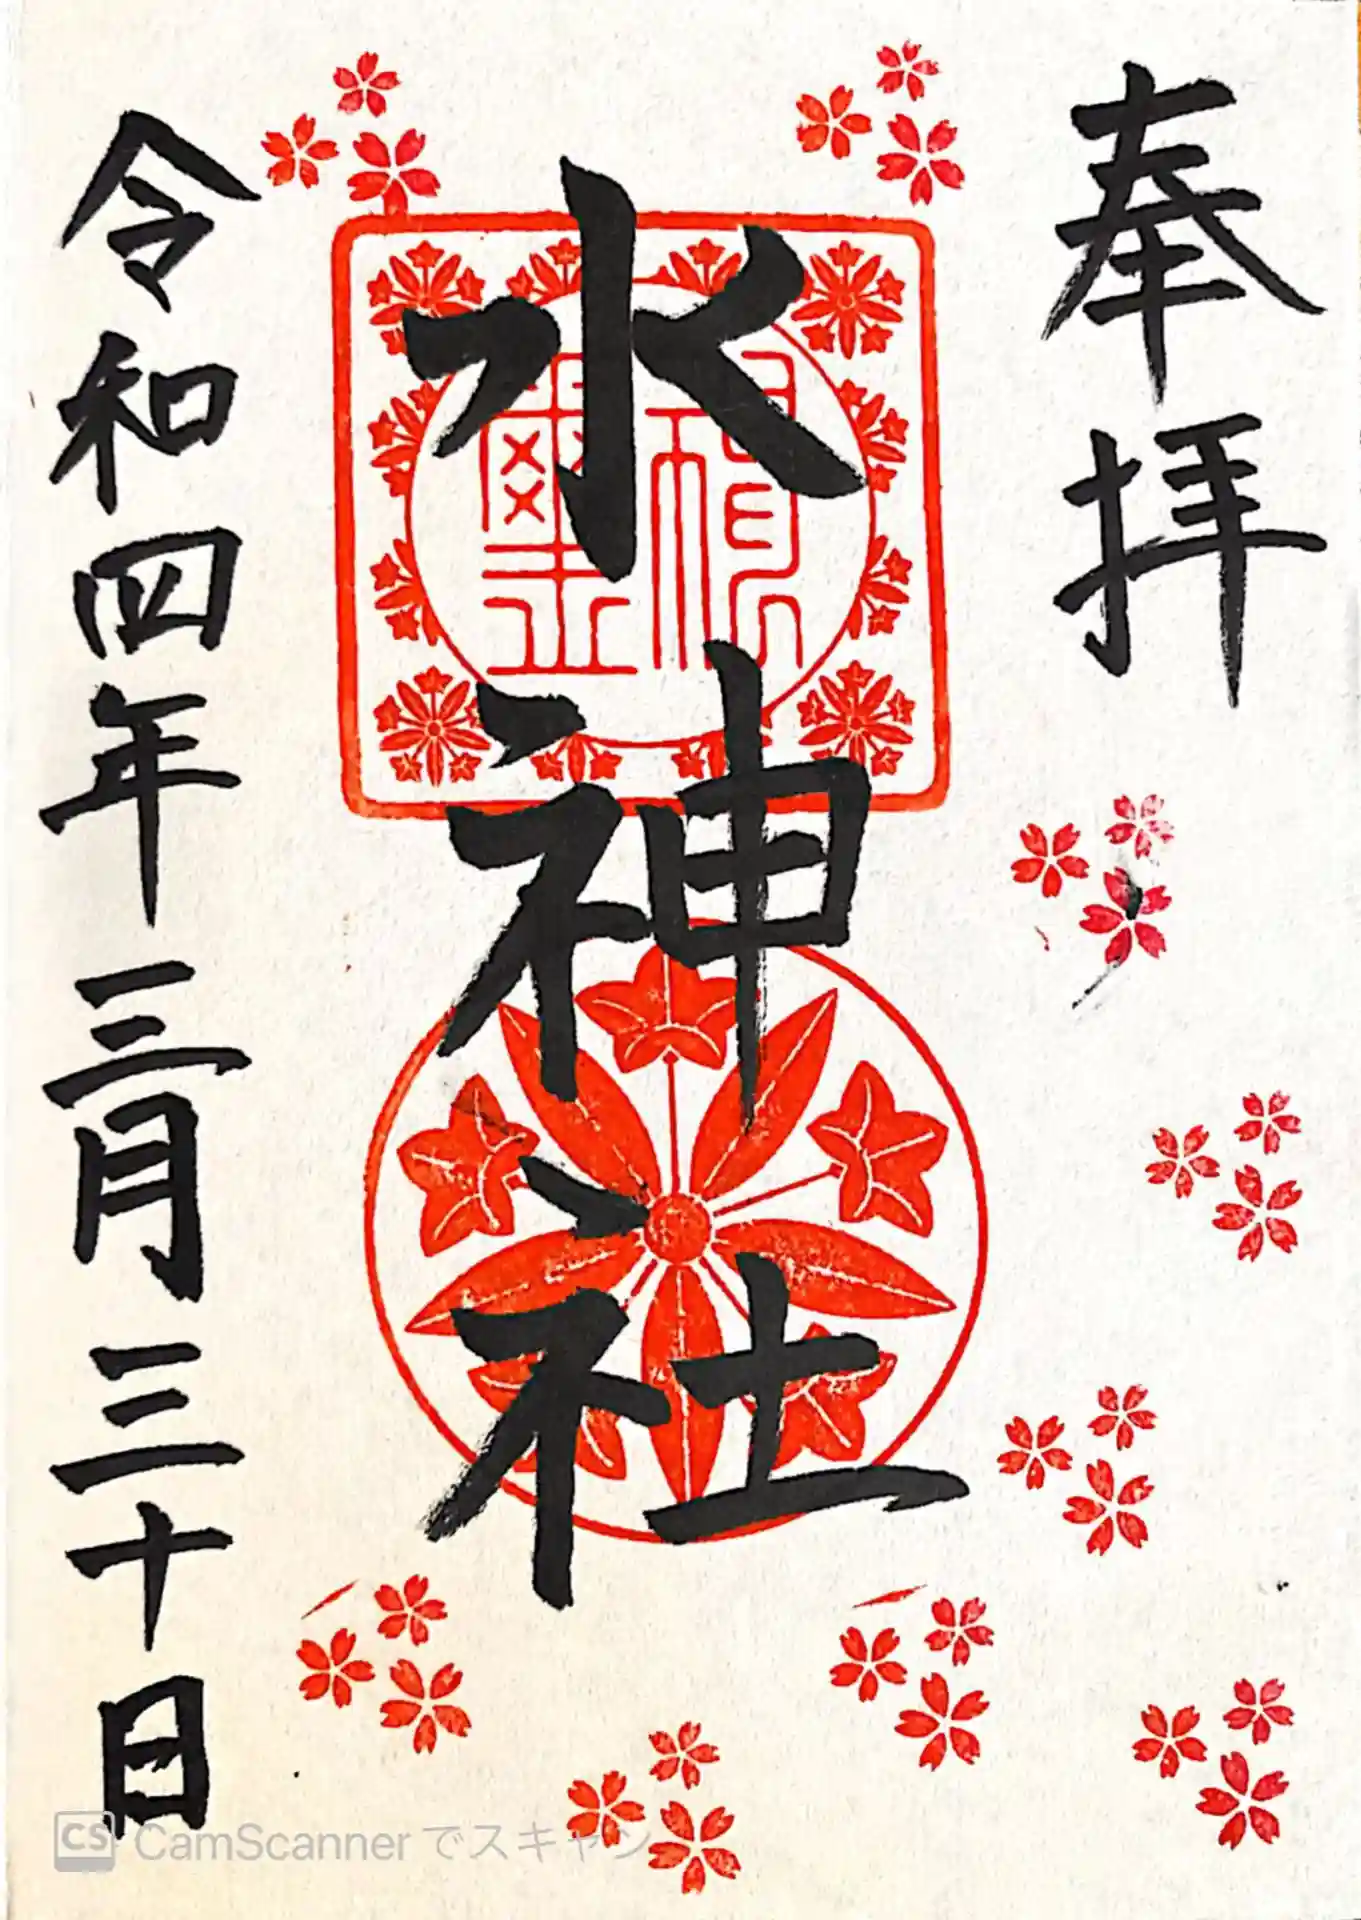 奉拝
水神社
令和四年三月三十日
CS CamScanner でスキャン